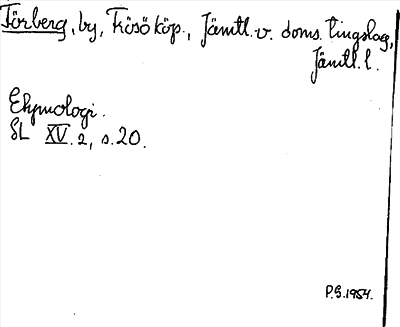 Törberg, by, Frösö köp., Jämtl. v. doms. tingslag,
Jämtl. l.
Etymologi.
SL XV.2, s.20.
P.G.1954.